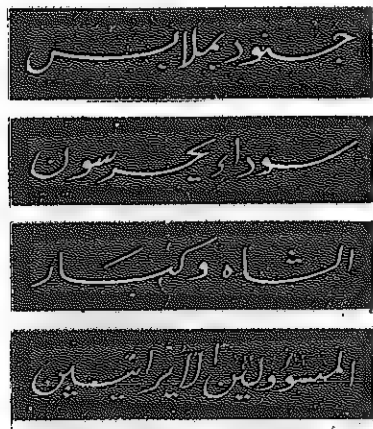 جنود بملابس
سوداء يحرسون
الشاه وكبار
المسؤولين الايرانيين